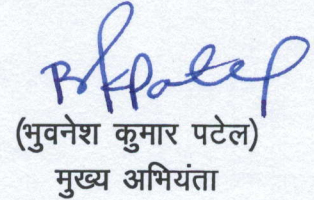 BKPatel
(भुवनेश कुमार पटेल)
मुख्य अभियंता